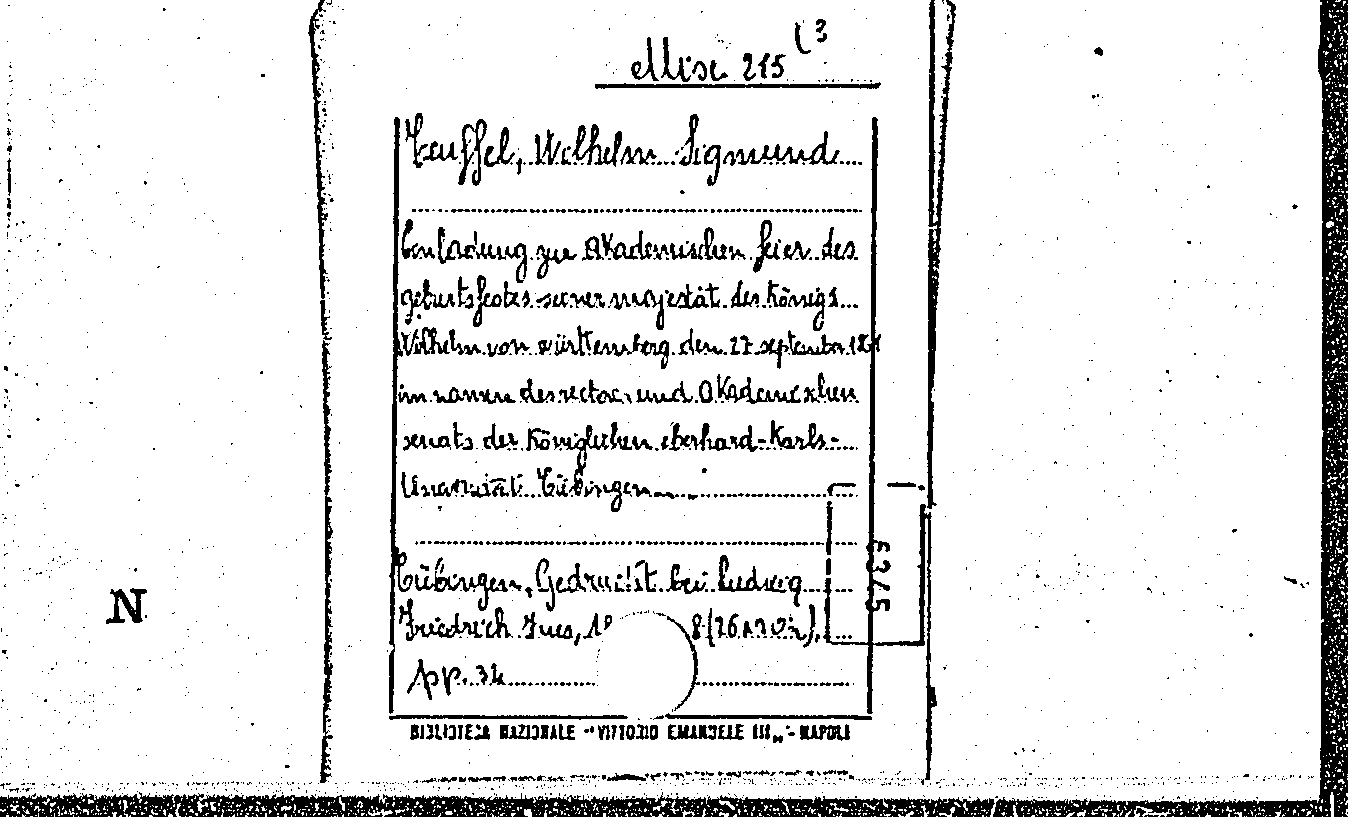 Misc. 215 (3
Teuffel, Wilhelm Sigmund
Einladung zur Akademischen feier des
geburtsfestes seiner majestät des Königs
Wilhelm von württemberg den 27 september
im namen des rector und Akademischen
senats der Königlichen eberhard-Karls-
Universität Tübingen
Tübingen, Gedruckt bei Ludwig
Friedrich Fues, 18 8 (26
pp. 34
BIBLIOTECA NAZIONALE "VITTORIO EMANUELE III" - NAPOLI
N